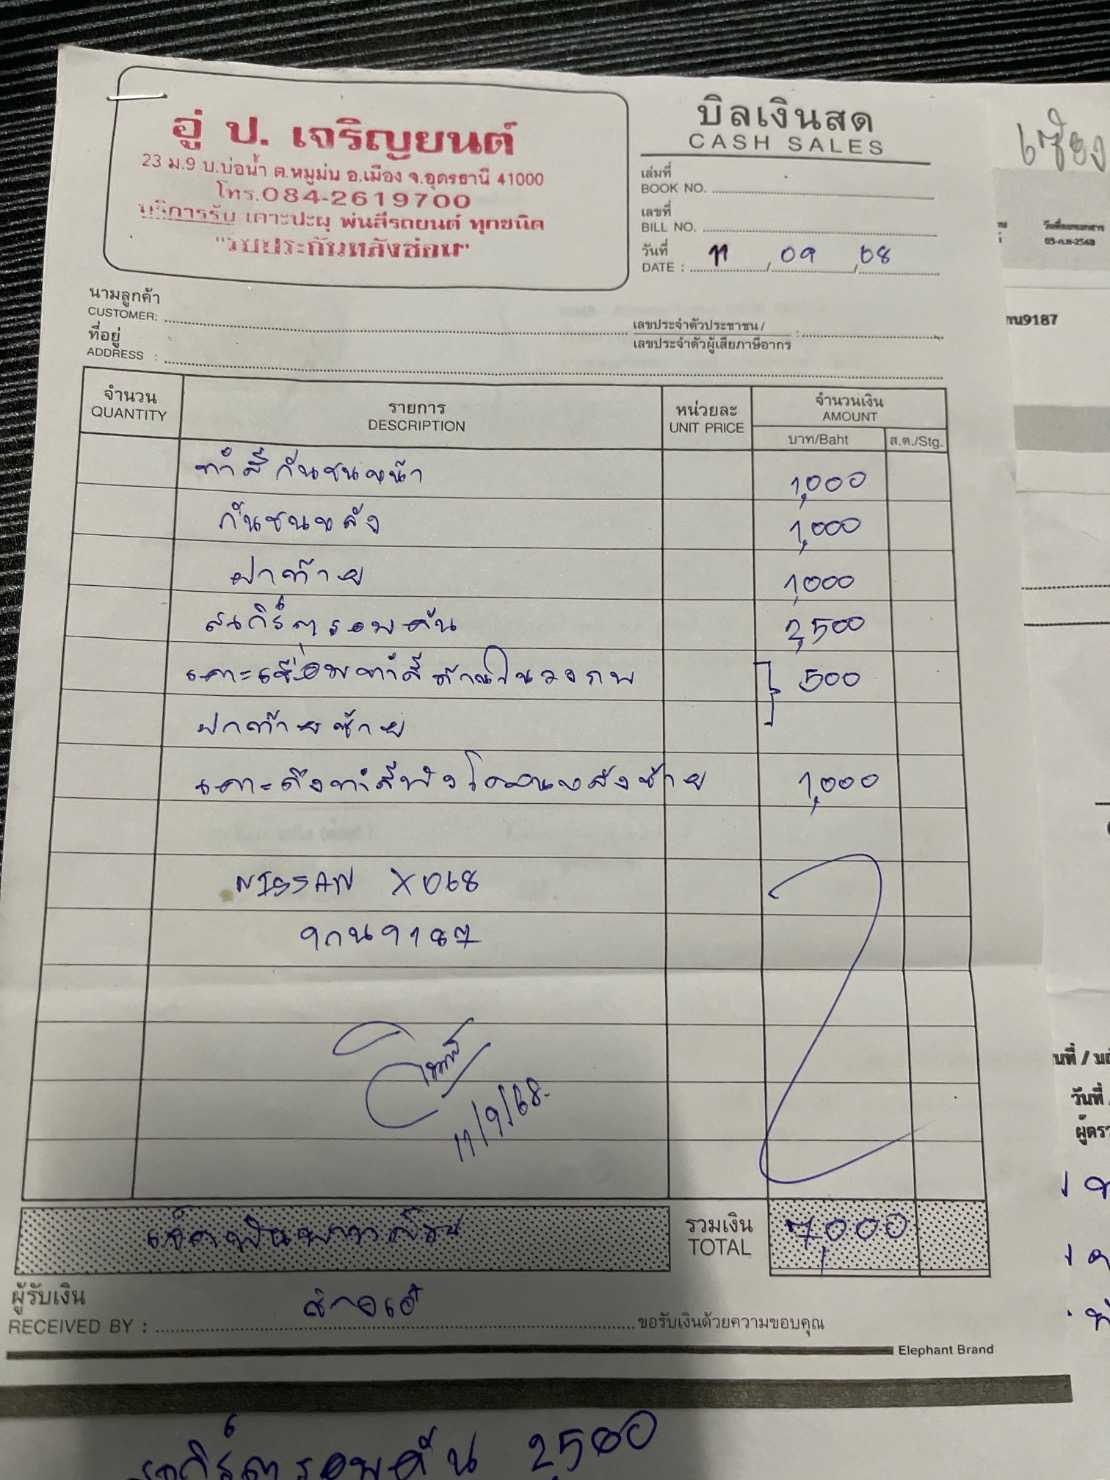 อู่ ป. เจริญยนต์
23 ม.9 บ.บ่อน้ำ ต.หมูม่น อ.เมือง จ.อุดรธานี 41000
โทร.084-2619700
บริการรับ เคาะปะผุ พ่นสีรถยนต์ ทุกชนิด
"รับประกันหลังซ่อม"
บิลเงินสด
CASH SALES
เล่มที่
BOOK NO.
เลขที่
BILL NO.
วันที่
DATE : 11 / 09 / 68
นามลูกค้า
CUSTOMER:
เลขประจำตัวประชาชน /
เลขประจำตัวผู้เสียภาษีอากร :
ที่อยู่
ADDRESS :
จำนวน
QUANTITY
รายการ
DESCRIPTION
หน่วยละ
UNIT PRICE
จำนวนเงิน
AMOUNT
บาท/Baht
ส.ต./Stg.
ทำสีกันชนหน้า 1,000
กันชนหลัง 1,000
ฝาท้าย 1,000
สเกิร์ตรอบคัน 2,500
เคาะเชื่อมทำสีด้านในวงกบ 500
ฝาท้ายซ้าย
เคาะดึงทำสีพัง โคลนหลังซ้าย 1,000
NISSAN X068
9กน9187
11/9/68.
เจ็ดพันบาทถ้วน
รวมเงิน
TOTAL
7,000
ผู้รับเงิน
RECEIVED BY :
ขอรับเงินด้วยความขอบคุณ
Elephant Brand
สเกิร์ตรอบคัน 2,500
วันที่เอกสาร
05-ก.ย-2568
กน9187
วันที่